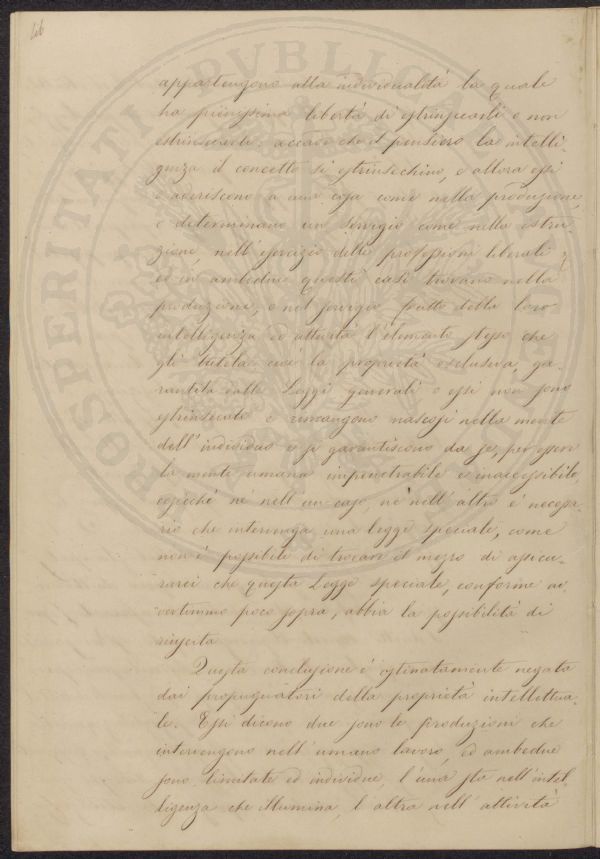 46
appartengono alla individualità la quale
ha pienissima libertà di estrinsecarli o non
estrinsecarli: accade che il pensiero la intelli-
genza il concetto si estrinsechino, e allora essi
o aderiscono a una cosa come nella produzione,
o determinano un servigio come nella istru-
zione, nell'esercizio delle professioni liberali
ed in ambedue questi casi trovano nella
produzione, o nel servigio frutto della loro
intelligenza ed attività l'elemento stesso che
gli tutela cioè la proprietà esclusiva, ga-
rantita dalle Leggi generali o essi non sono
estrinsecati e rimangono nascosi nella mente
dell'individuo e si garantiscono da se, per essere
la mente umana impenetrabile e inaccessibile,
cosicchè nè nell'un caso, nè nell'altro è necessa-
rio che intervenga una legge speciale, come
non è possibile di trovare il mezzo di assicu-
rarci che questa Legge speciale, conforme av-
vertimmo poco sopra, abbia la possibilità di
riuscita.
Questa conclusione è ostinatamente negata
dai propugnatori della proprietà intellettua-
le. Essi dicono due sono le produzioni che
intervengono nell'umano lavoro, ed ambedue
sono limitate ed individue, l'una sta nell'intel-
ligenza che illumina, l'altra nell'attività
PROSPERITATI PVBLICAE